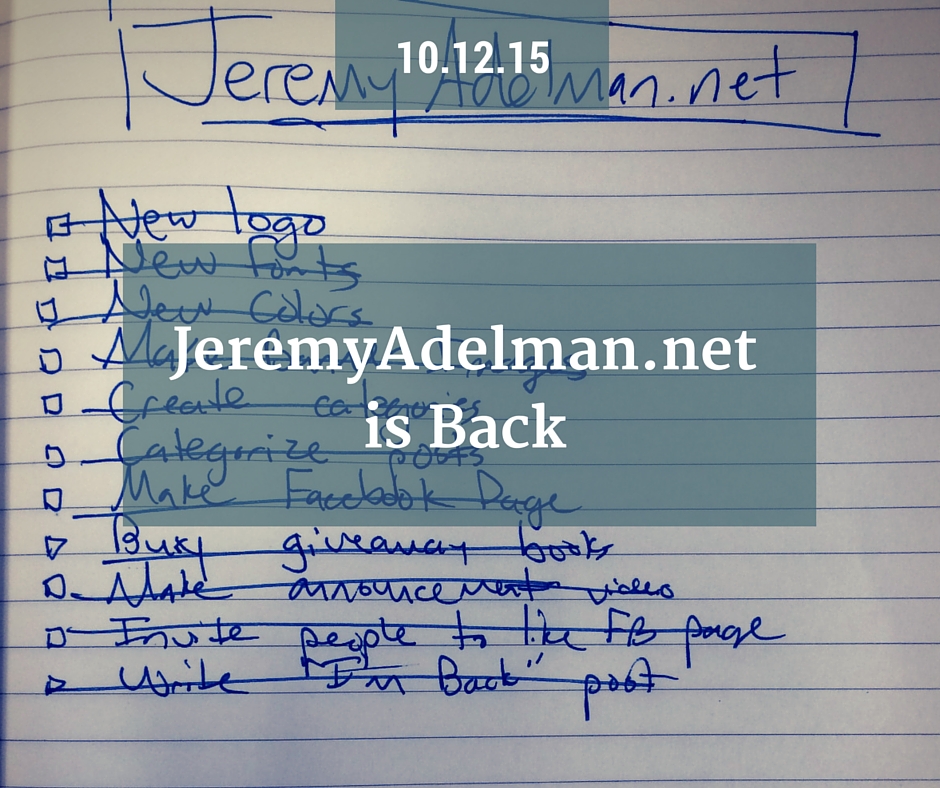 10.12.15
JeremyAdelman.net
New logo
New Fonts
New Colors
JeremyAdelman.net
is Back
Make Images
Create categories
Categorize posts
Make Facebook Page
Buy giveaway books
Make annoucement video
Invite people to like FB page
Write "I'm Back" post